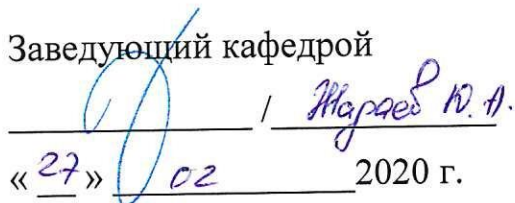 Заведующий кафедрой
/ Жараев Ю.А.
« 27 » 02 2020 г.